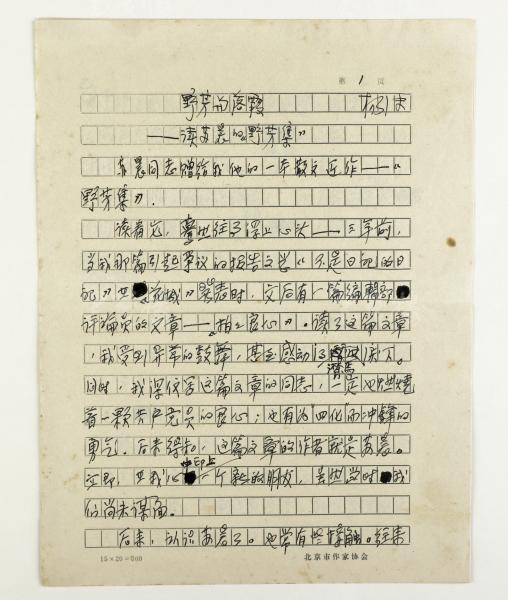 第 1 页
野芳与落霞
——读苏晨的《野芳集》
苏晨同志赠给我他的一本散文近作——《
野芳集》。
读着它，往事浮上心头——三年前，
当我那篇引起争议的报告文学《不是日记的日
记》在《花城》发表时，文后有一篇编辑部
评论员的文章——《拍拍良心》。读了这篇文章
，我受到异常的鼓舞，甚至感动得潸然泪下。
同时，我深信写这篇文章的同志，一定也燃烧
着一颗共产党员的良心；也有为四化而冲锋的
勇气。后来得知，这篇文章的作者就是苏晨。
立即，在我心中印上一个新的朋友，虽然当时我
们尚未谋面。
后来，认识苏晨了。也常有些接触。
15×20＝300
北京市作家协会